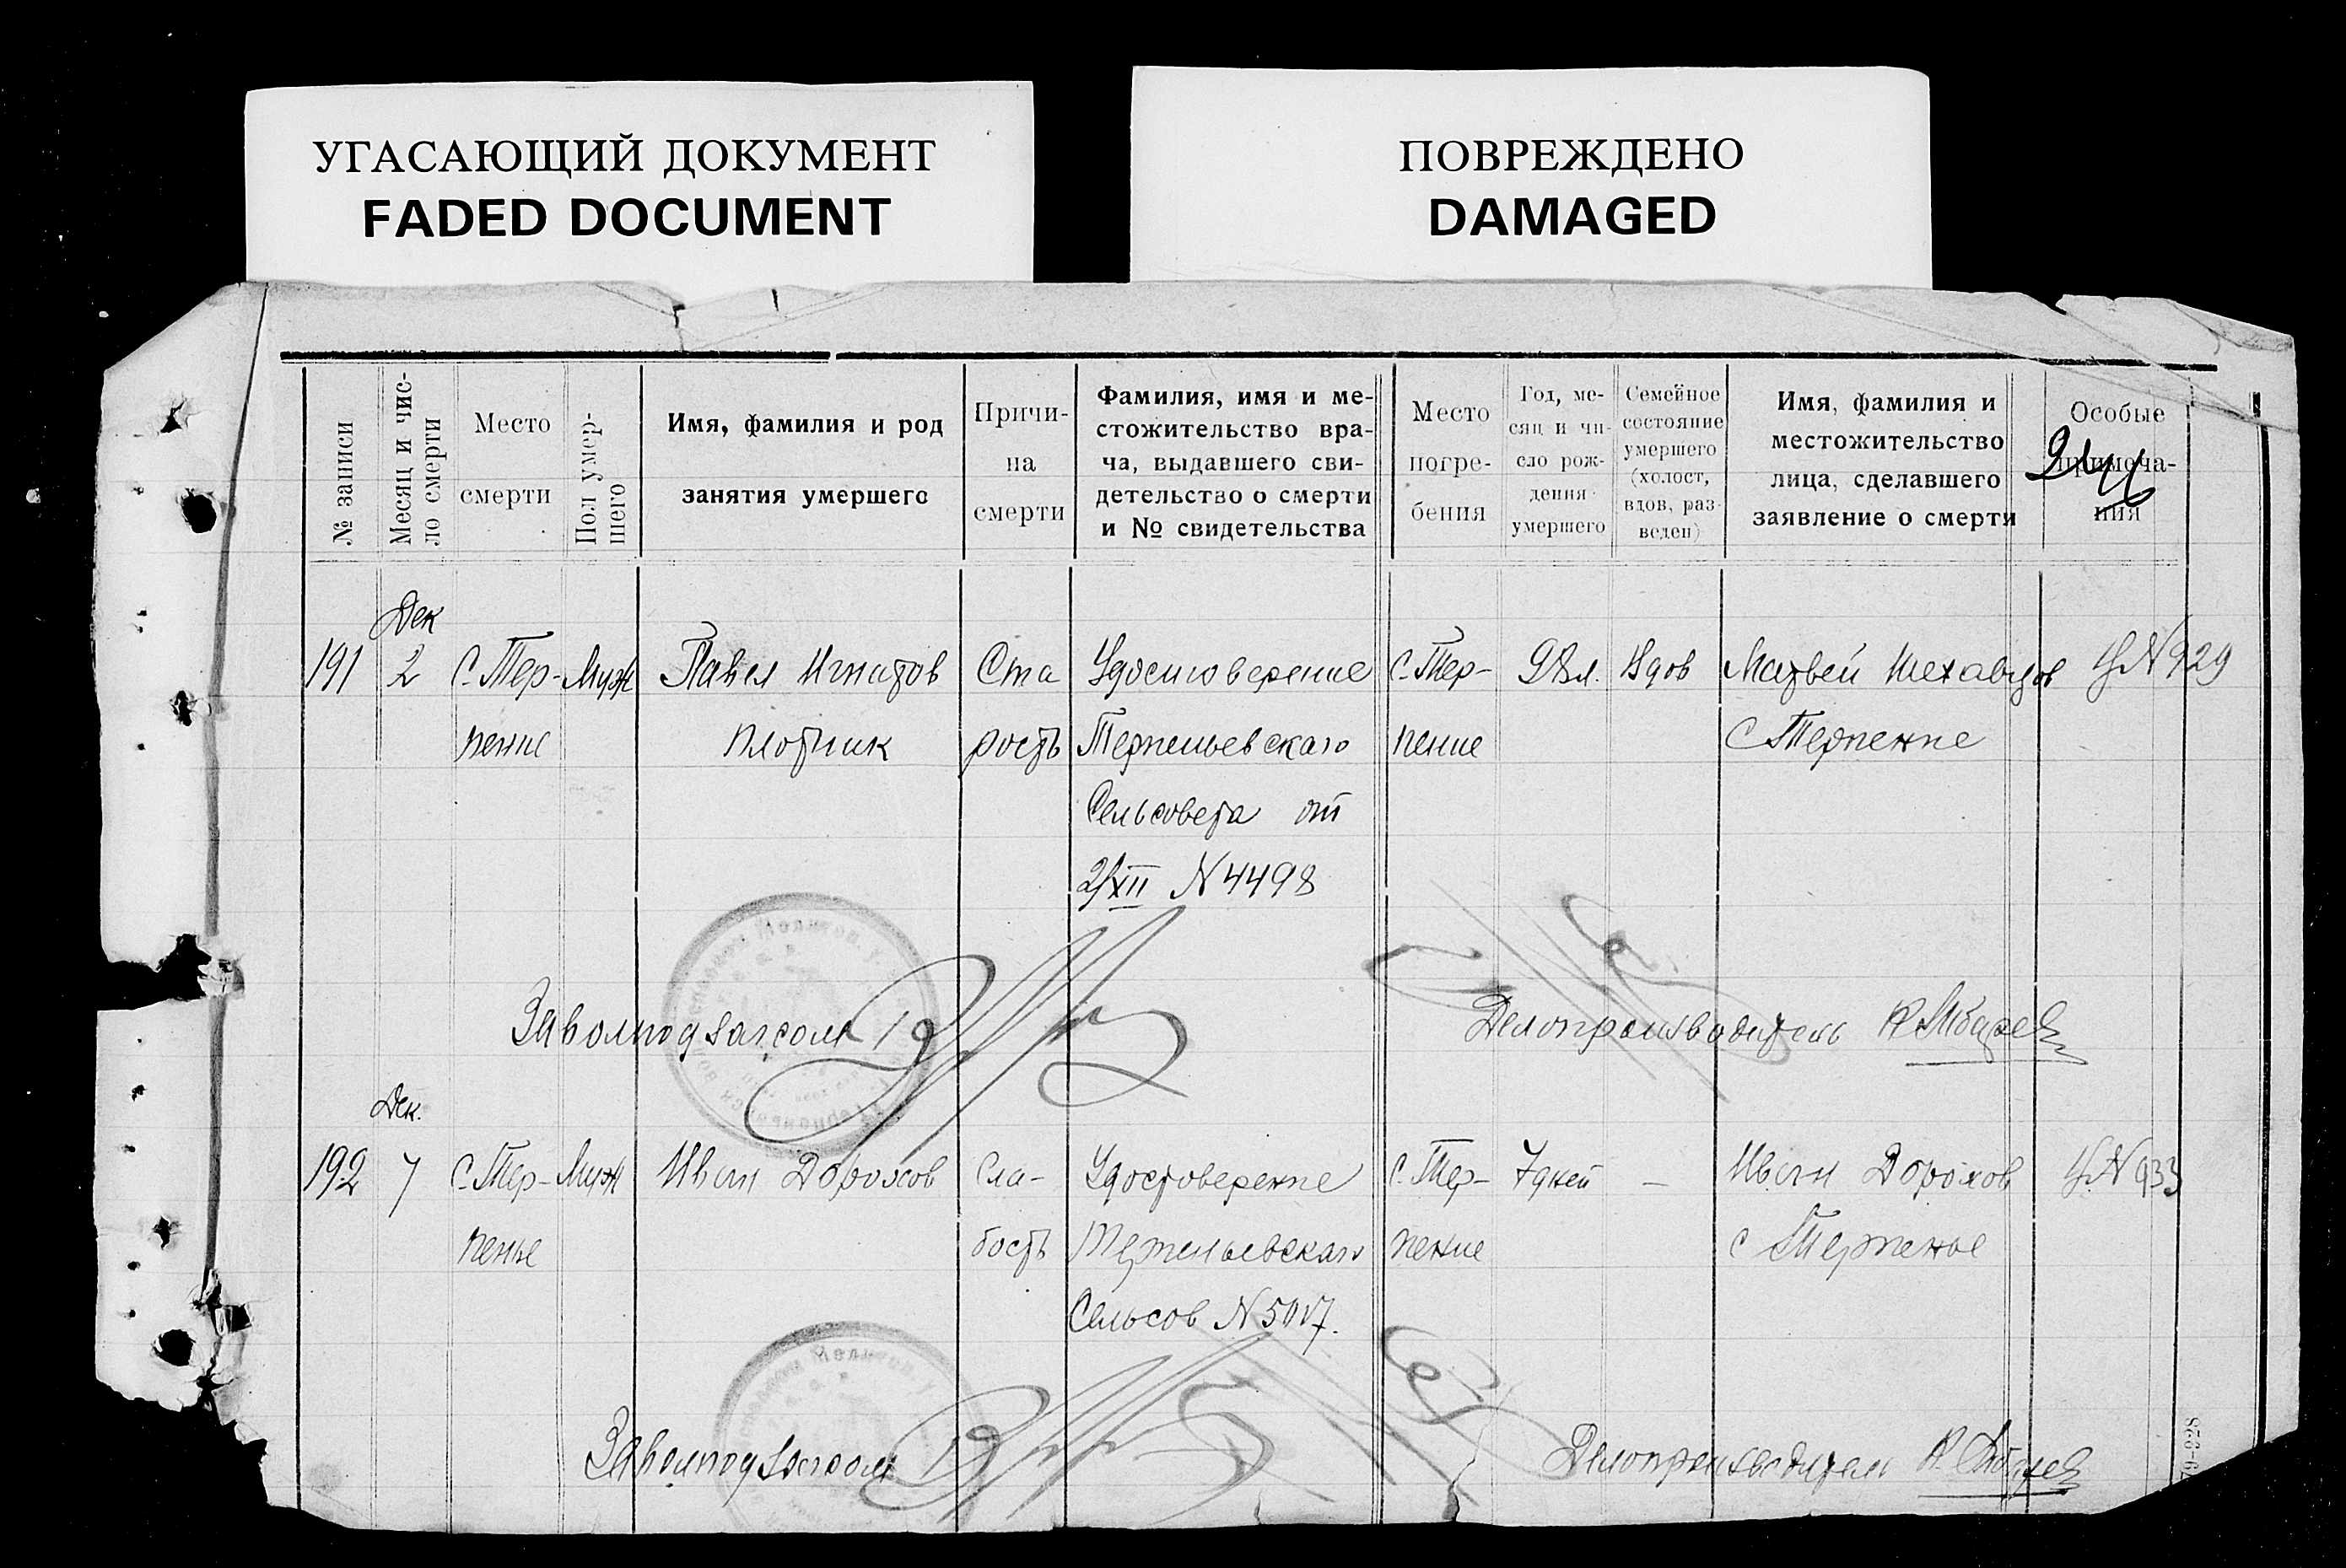 УГАСАЮЩИЙ ДОКУМЕНТ
FADED DOCUMENT
ПОВРЕЖДЕНО
DAMAGED
№ записи
Месяц и чис-
ло смерти
Место
смерти
Пол умер-
шего
Имя, фамилия и род
занятия умершего
Причи-
на
смерти
Фамилия, имя и ме-
стожительство вра-
ча, выдавшего сви-
детельство о смерти
и № свидетельства
Место
погре-
бения
Год, ме-
сяц и чи-
сло рож-
дения
умершего
Семейное
состояние
умершего
(холост,
вдов, раз-
веден)
Имя, фамилия и
местожительство
лица, сделавшего
заявление о смерти
Особые
примеча-
ния
191
Дек
2
С. Тер-
пение
Муж
Павел Игнатов
Плотник
Ста
рость
Удостоверение
Терпеньевскаго
Сельсовета от
2/XII N 4498
С. Тер-
пение
Вдов
Матвей
С Терпение
N 929
Заволподзагсом
Делопроизводитель
192
Дек.
7
С. Тер-
пенье
Муж
Иван Дорохов
Сла-
бость
Удостоверение
Терпеньевскаго
Сельсов N
С. Тер-
пение
7 дней
—
Иван Дорохов
с Терпенье
N 933
Заволподзагсом
Делопроизводитель